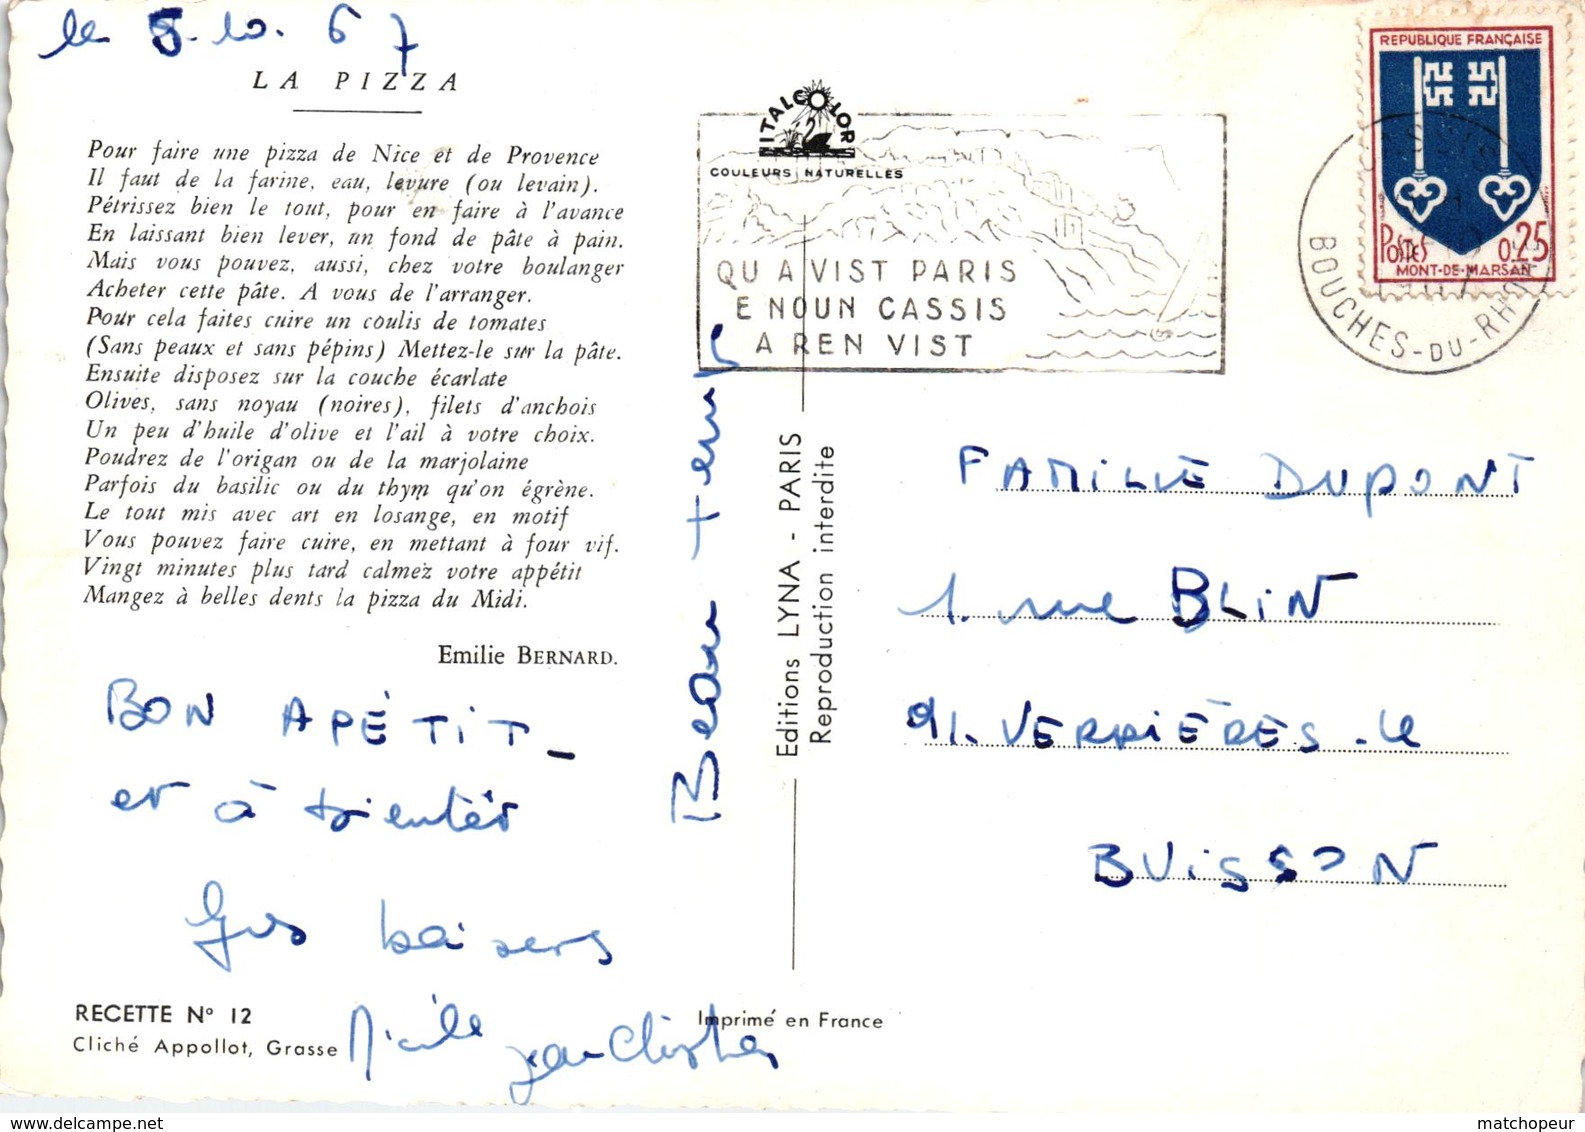 le 5.10.67
LA PIZZA
Pour faire une pizza de Nice et de Provence
Il faut de la farine, eau, levure (ou levain).
Pétrissez bien le tout, pour en faire à l'avance
En laissant bien lever, un fond de pâte à pain.
Mais vous pouvez, aussi, chez votre boulanger
Acheter cette pâte. A vous de l'arranger.
Pour cela faites cuire un coulis de tomates
(Sans peaux et sans pépins) Mettez-le sur la pâte.
Ensuite disposez sur la couche écarlate
Olives, sans noyau (noires), filets d'anchois
Un peu d'huile d'olive et l'ail à votre choix.
Poudrez de l'origan ou de la marjolaine
Parfois du basilic ou du thym qu'on égrène.
Le tout mis avec art en losange, en motif
Vous pouvez faire cuire, en mettant à four vif.
Vingt minutes plus tard calmez votre appétit
Mangez à belles dents la pizza du Midi.
Emilie BERNARD.
BON APÉTIT -
et à bientôt
Gros baisers
Nicole
Jean Christophe
RECETTE N° 12
Cliché Appollot, Grasse
Beau temps
Editions LYNA - PARIS
Reproduction interdite
Imprimé en France
ITALCOLOR
COULEURS NATURELLES
QU A VIST PARIS
E NOUN CASSIS
A REN VIST
REPUBLIQUE FRANÇAISE
POSTES 0,25
MONT-DE-MARSAN
BOUCHES-DU-RHONE
FAMILLE DUPONT
1. rue BLIN
91. VERRIÈRES-le
BUISSON
delcampe.net
matchopeur